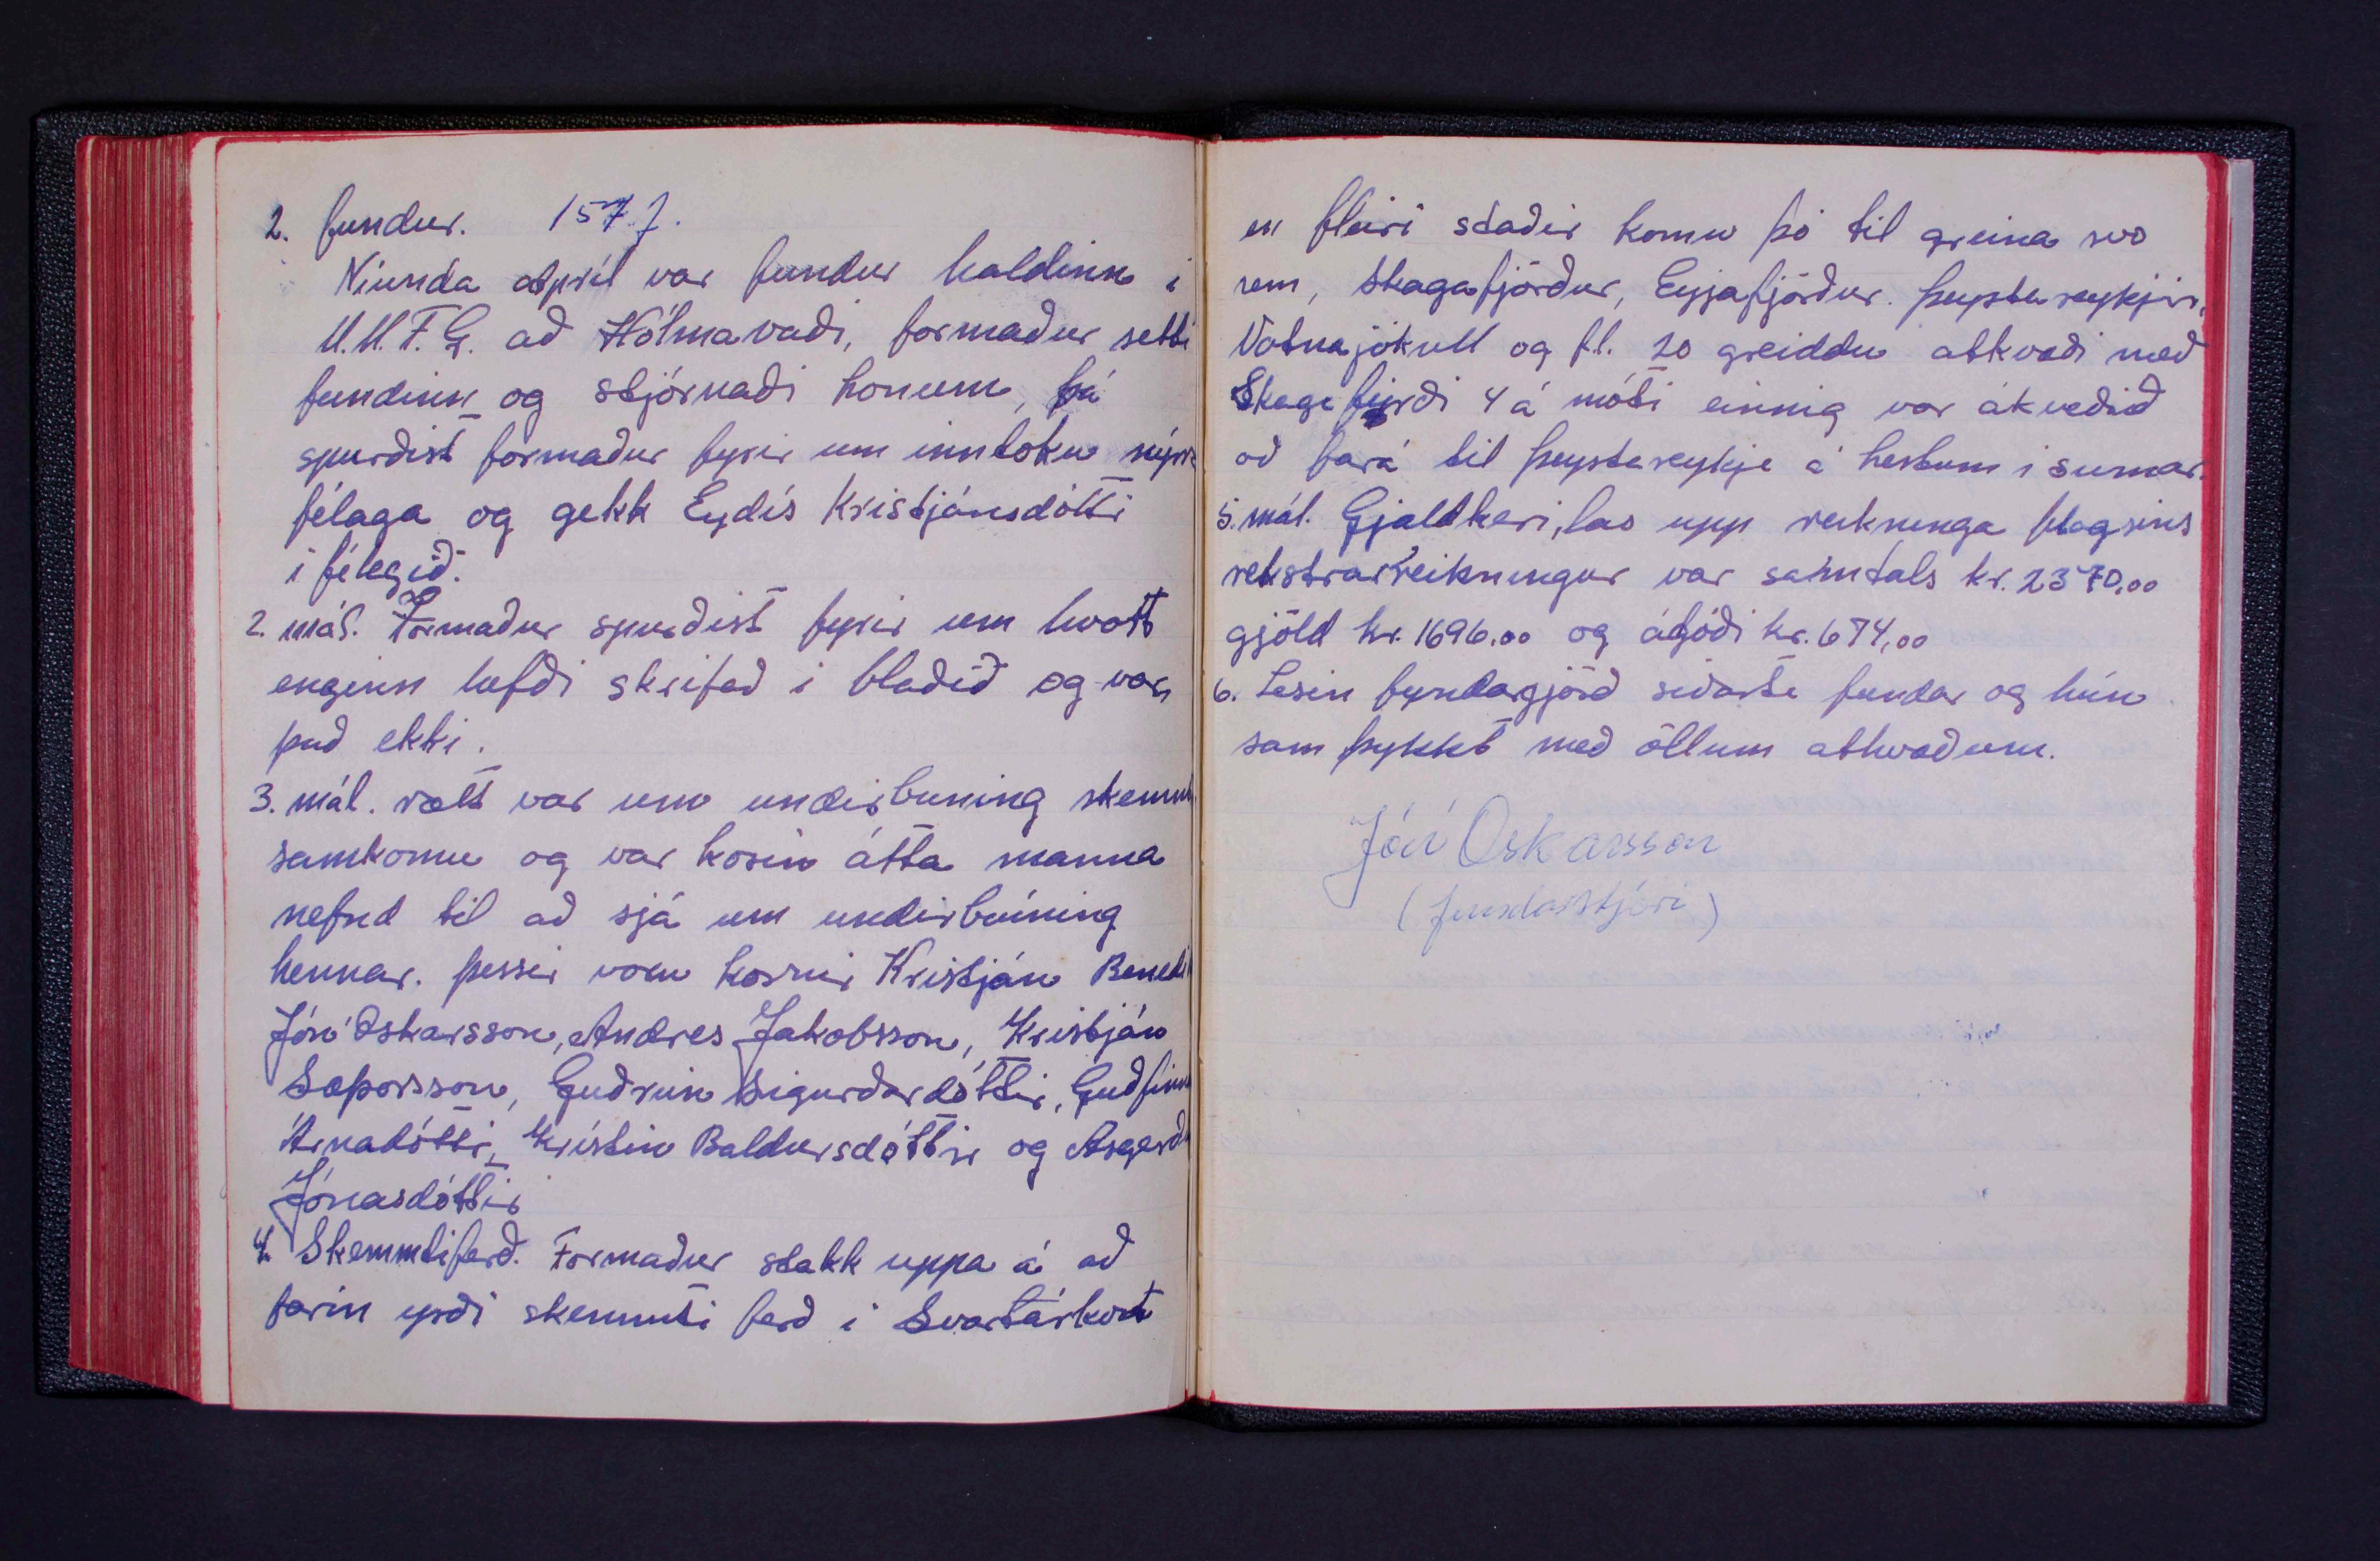 2. fundur. 1577.
Níunda apríl var fundur haldinn í
U.M.F.G. að Hólmavaði, formaður setti
fundinn og stjórnaði honum, þá
spurðist formaður fyrir um inntöku nýrra
félaga og gekk Eydís Kristjánsdótti
í félegið.
2. mál. Formaður spurðist fyrir um hvort
enginn hefði skrifað í blaðið og var
það ekki.
3. mál. rætt var um undirbuning skemmti
samkomu og var kosin átta manna
nefnd til að sjá um undirbúning
hennar. þessir voru kosnir Kristján Benedi
Jón Oskarsson, Andres Jakobsson, Kristján
Sæþorsson, Guðrún Sigurðardóttir, Guðfinna
Árnadótti, Kristín Baldursdóttir og Asgerð
Jónasdóttir
4. Skemmtiferð. Formaður stakk uppa á að
farin yrði skemmti ferð i Svartárkot
en fleiri staðir komu þó til greina svo
sem, Skagafjörður, Eyjafjörður. Þeystareykjir,
Vatnajökull og fl. 20 greiddu atkvæði með
Skagafirði 4 á móti einnig var ákveðið
að fara til Þeystareykje á hestum i sumar.
5. mál. Gjaldkeri, las upp reikninga félagsins
rekstrarreikningur var samtals kr. 2370,00
gjöld kr. 1696.00 og ágóði kr. 674,00
6. Lesin fyndargjörð síðasta fundar og hún
sam þykkt með öllum atkvæðum.
Jón Oskarsson
(fundarstjóri)